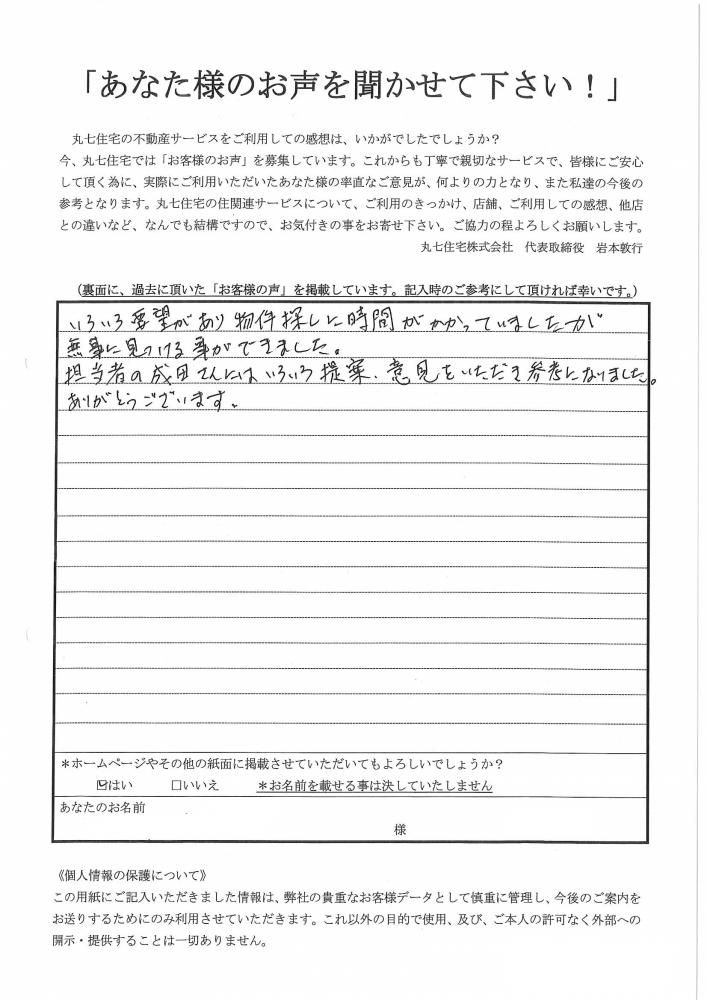 「あなた様のお声を聞かせて下さい！」
丸七住宅の不動産サービスをご利用しての感想は、いかがでしたでしょうか？
今、丸七住宅では「お客様のお声」を募集しています。これからも丁寧で親切なサービスで、皆様にご安心
して頂く為に、実際にご利用いただいたあなた様の率直なご意見が、何よりの力となり、また私達の今後の
参考となります。丸七住宅の住関連サービスについて、ご利用のきっかけ、店舗、ご利用しての感想、他店
との違いなど、なんでも結構ですので、お気付きの事をお寄せ下さい。ご協力の程よろしくお願いします。
丸七住宅株式会社　代表取締役　岩本敦行
（裏面に、過去に頂いた「お客様の声」を掲載しています。記入時のご参考にして頂ければ幸いです。）
いろいろ要望があり物件探しに時間がかかっていましたが
無事に見つける事ができました。
担当者の成田さんにはいろいろ提案、意見をいただき参考になりました。
ありがとうございます。
＊ホームページやその他の紙面に掲載させていただいてもよろしいでしょうか？
☑はい　□いいえ　＊お名前を載せる事は決していたしません
あなたのお名前
様
《個人情報の保護について》
この用紙にご記入いただきました情報は、弊社の貴重なお客様データとして慎重に管理し、今後のご案内を
お送りするためにのみ利用させていただきます。これ以外の目的で使用、及び、ご本人の許可なく外部への
開示・提供することは一切ありません。